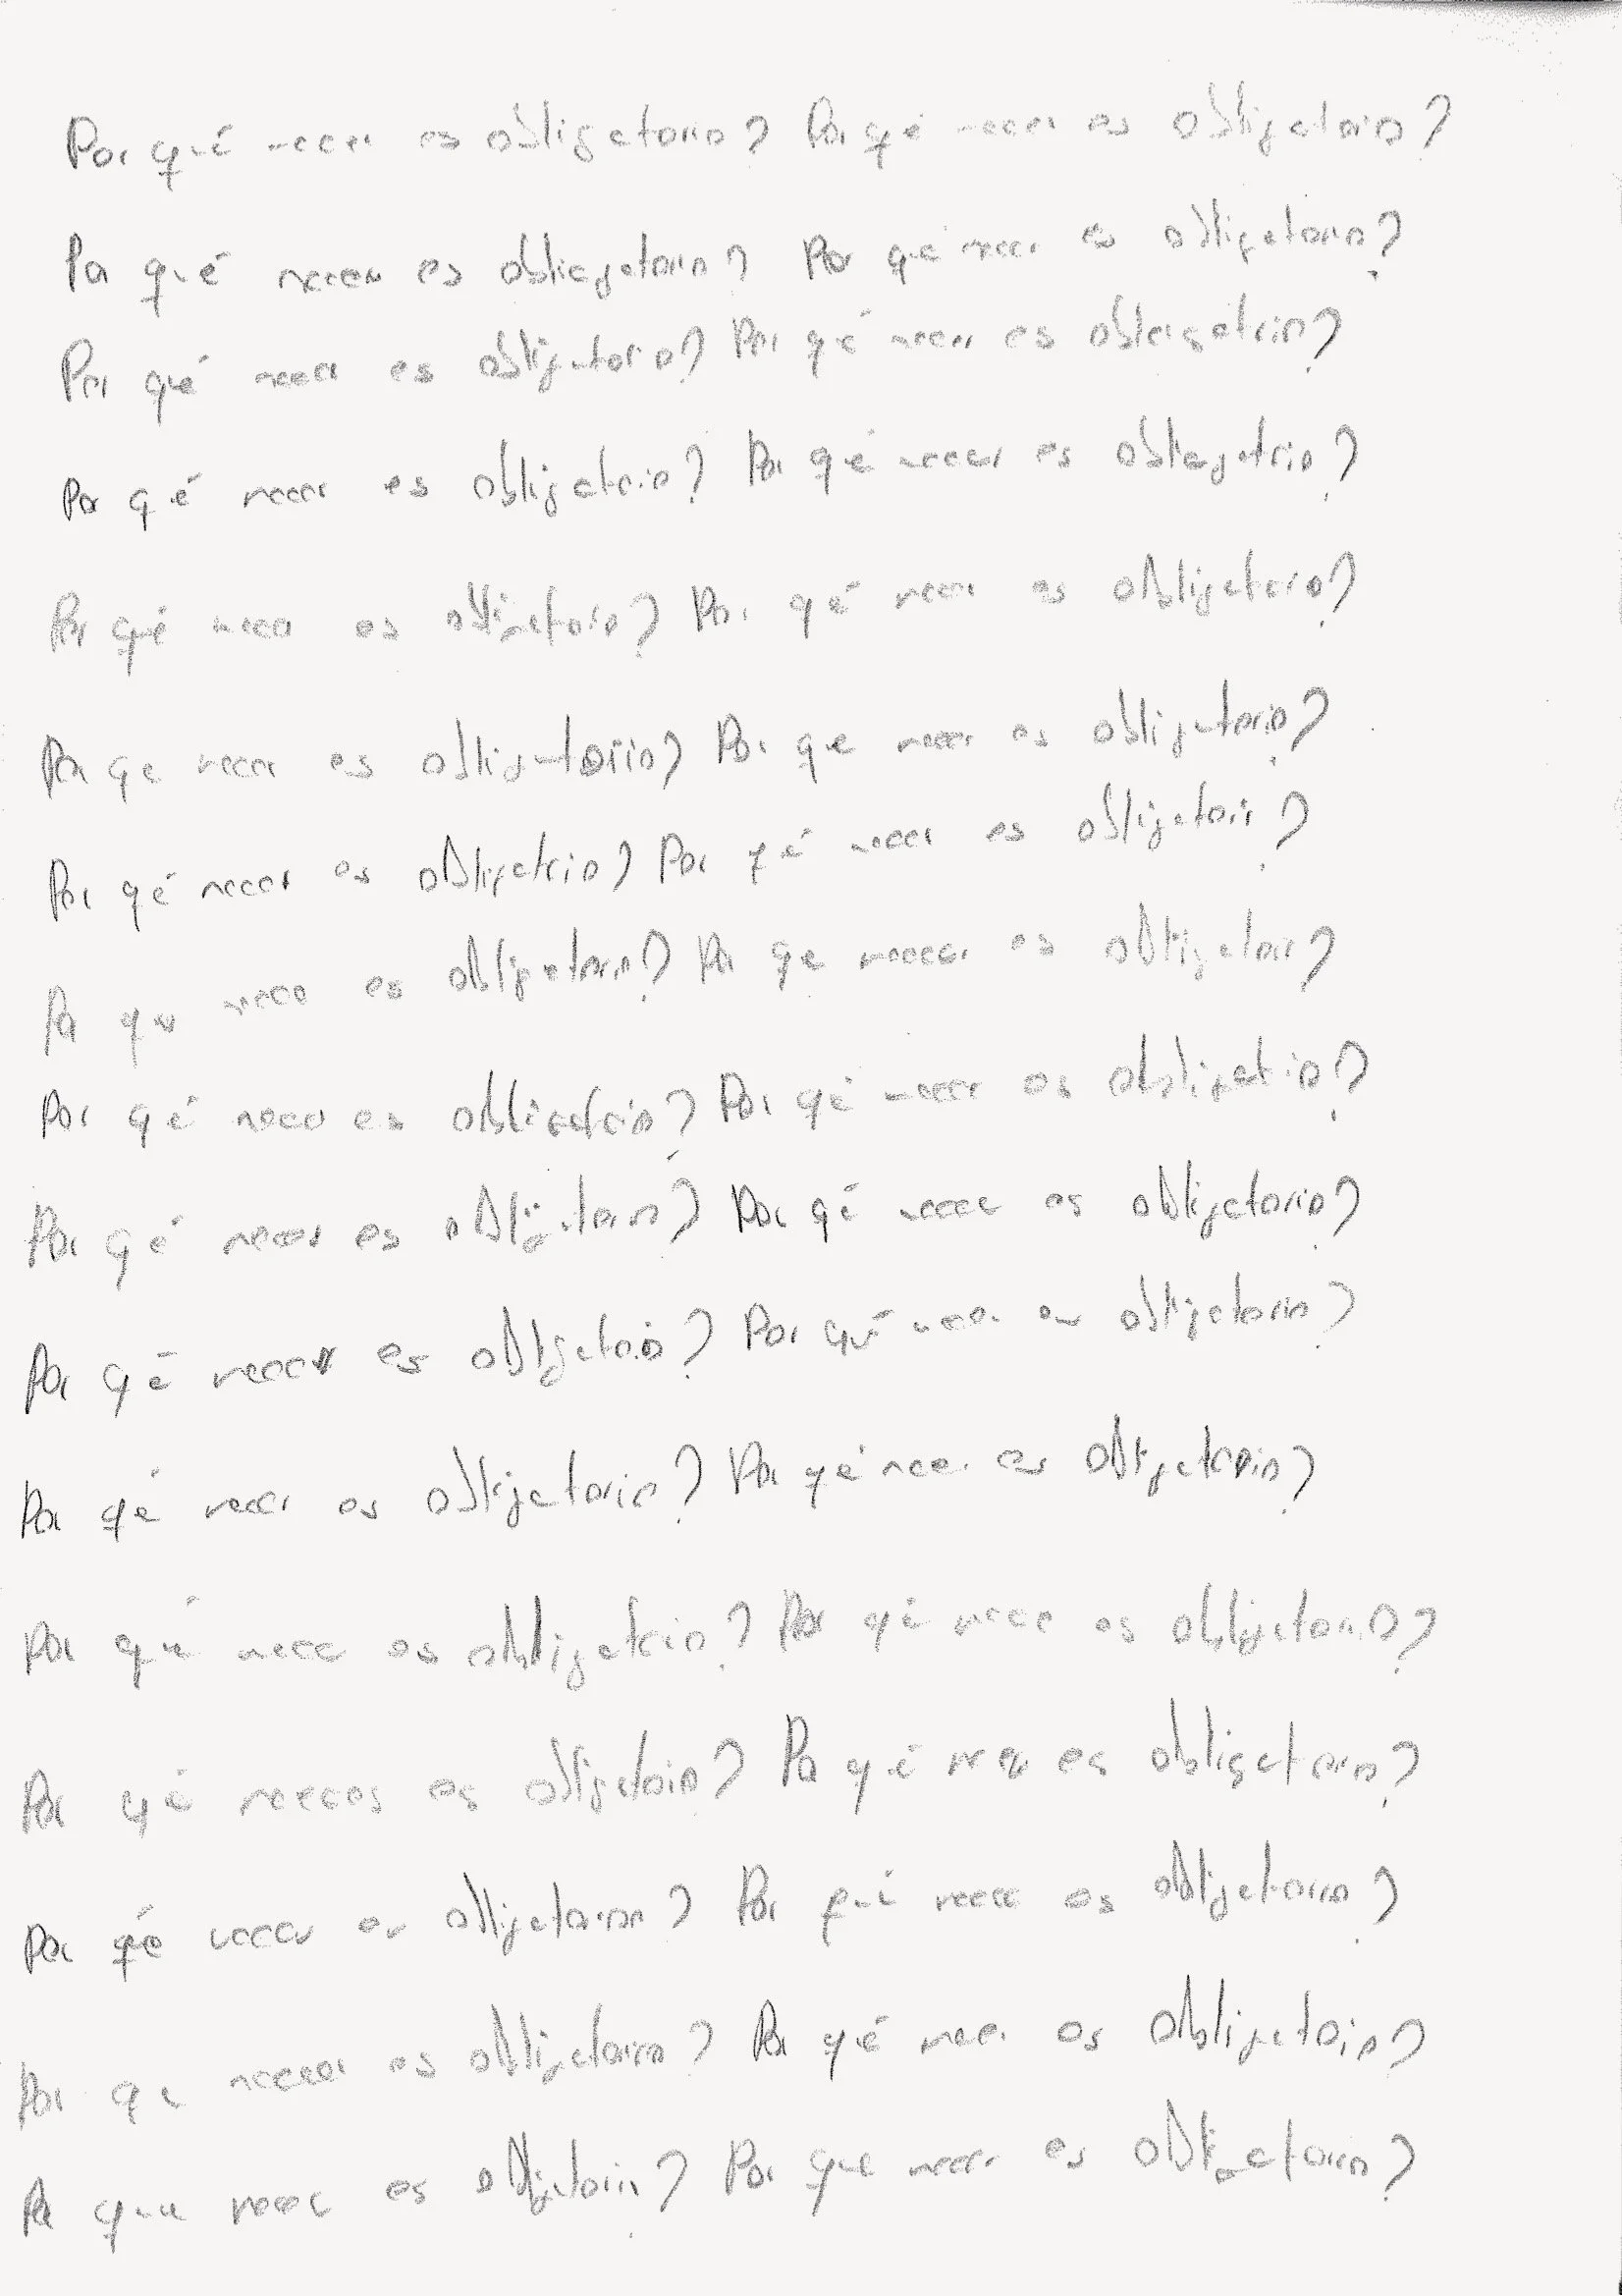 Por qué nacer es obligatorio? Por qué nacer es obligatorio?
Por qué nacer es obligatorio? Por qué nacer es obligatorio?
Por qué nacer es obligatorio? Por qué nacer es obligatorio?
Por qué nacer es obligatorio? Por qué nacer es obligatorio?
Por qué nacer es obligatorio? Por qué nacer es obligatorio?
Por qe nacer es obligatorio? Por que nacer es obligatorio?
Por qé nacer es obligatorio? Por qé nacer es obligatorio?
Por qu nacer es obligatorio? Por qe nacer es obligatorio?
Por qé nacer es obligatorio? Por qé nacer es obligatorio?
Por qé nacer es obligatorio? Por qé nacer es obligatorio?
Por qé nacer es obligatorio? Por qué nacer es obligatorio?
Por qé nacer es obligatorio? Por qé nacer es obligatorio?
Por qué nacer es obligatorio? Por qé nacer es obligatorio?
Por qé nacer es obligatorio? Por qé nacer es obligatorio?
Por qé nacer es obligatorio? Por qué nacer es obligatorio?
Por qe nacer es obligatorio? Por qé nacer es obligatorio?
Por que nacer es obligatorio? Por que nacer es obligatorio?